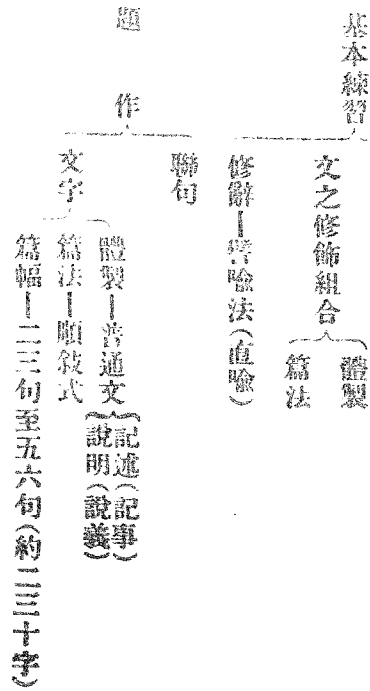 基本練習
文之修飾組合
體製
篇法
修辭—譬喻法(直喻)
題作
聯句
文字
體製—普通文
記述(記事)
說明(說義)
篇法—順敍式
篇幅—二三句至五六句(約二三十字)